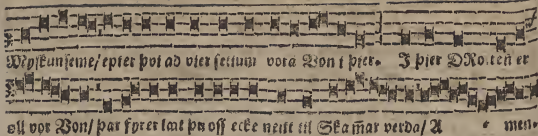 Myskunseme/ epter þvi ad vier settum vora Von i þier. I þier DRotten er
oll vor Von/ þar fyrer lat þu oss ecke neitt til Skam̄ar verda/ A men.